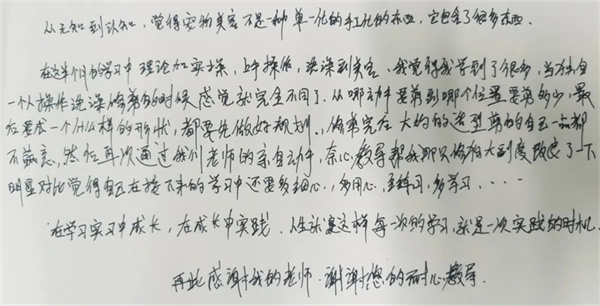 从无知到认知，觉得宠物美容不是一种单一化的手工化的东西，它包含了很多东西.
在这半个月的学习中理论加实操，上手操作，洗澡到美容、我觉得我学到了很多，当独自
一个人操作洗澡修剪的时候感觉就完全不同了.从哪动手要剪到哪个位置要剪多少,最
后要成一个什么样的形状，都要先做好规划.，修剪完在大约的造型剪的自己一点都
不满意，然后再次通过我们老师的亲自动手，奈心教导帮我那只修
改变了一下
明显对比觉得自己在接下来的学习中还要多细心，多用心，多练习，多学习....
在学习实习中成长，在成长中实践.人生就是这样每一次的学习，就是一次实践的时机.
再此感谢我的老师.谢谢您的耐心教导.